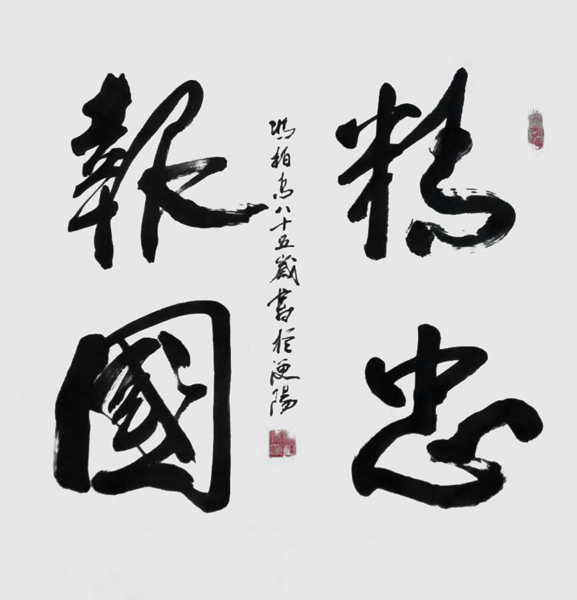 精忠
報國
馮柏高八十五歲書於浭陽